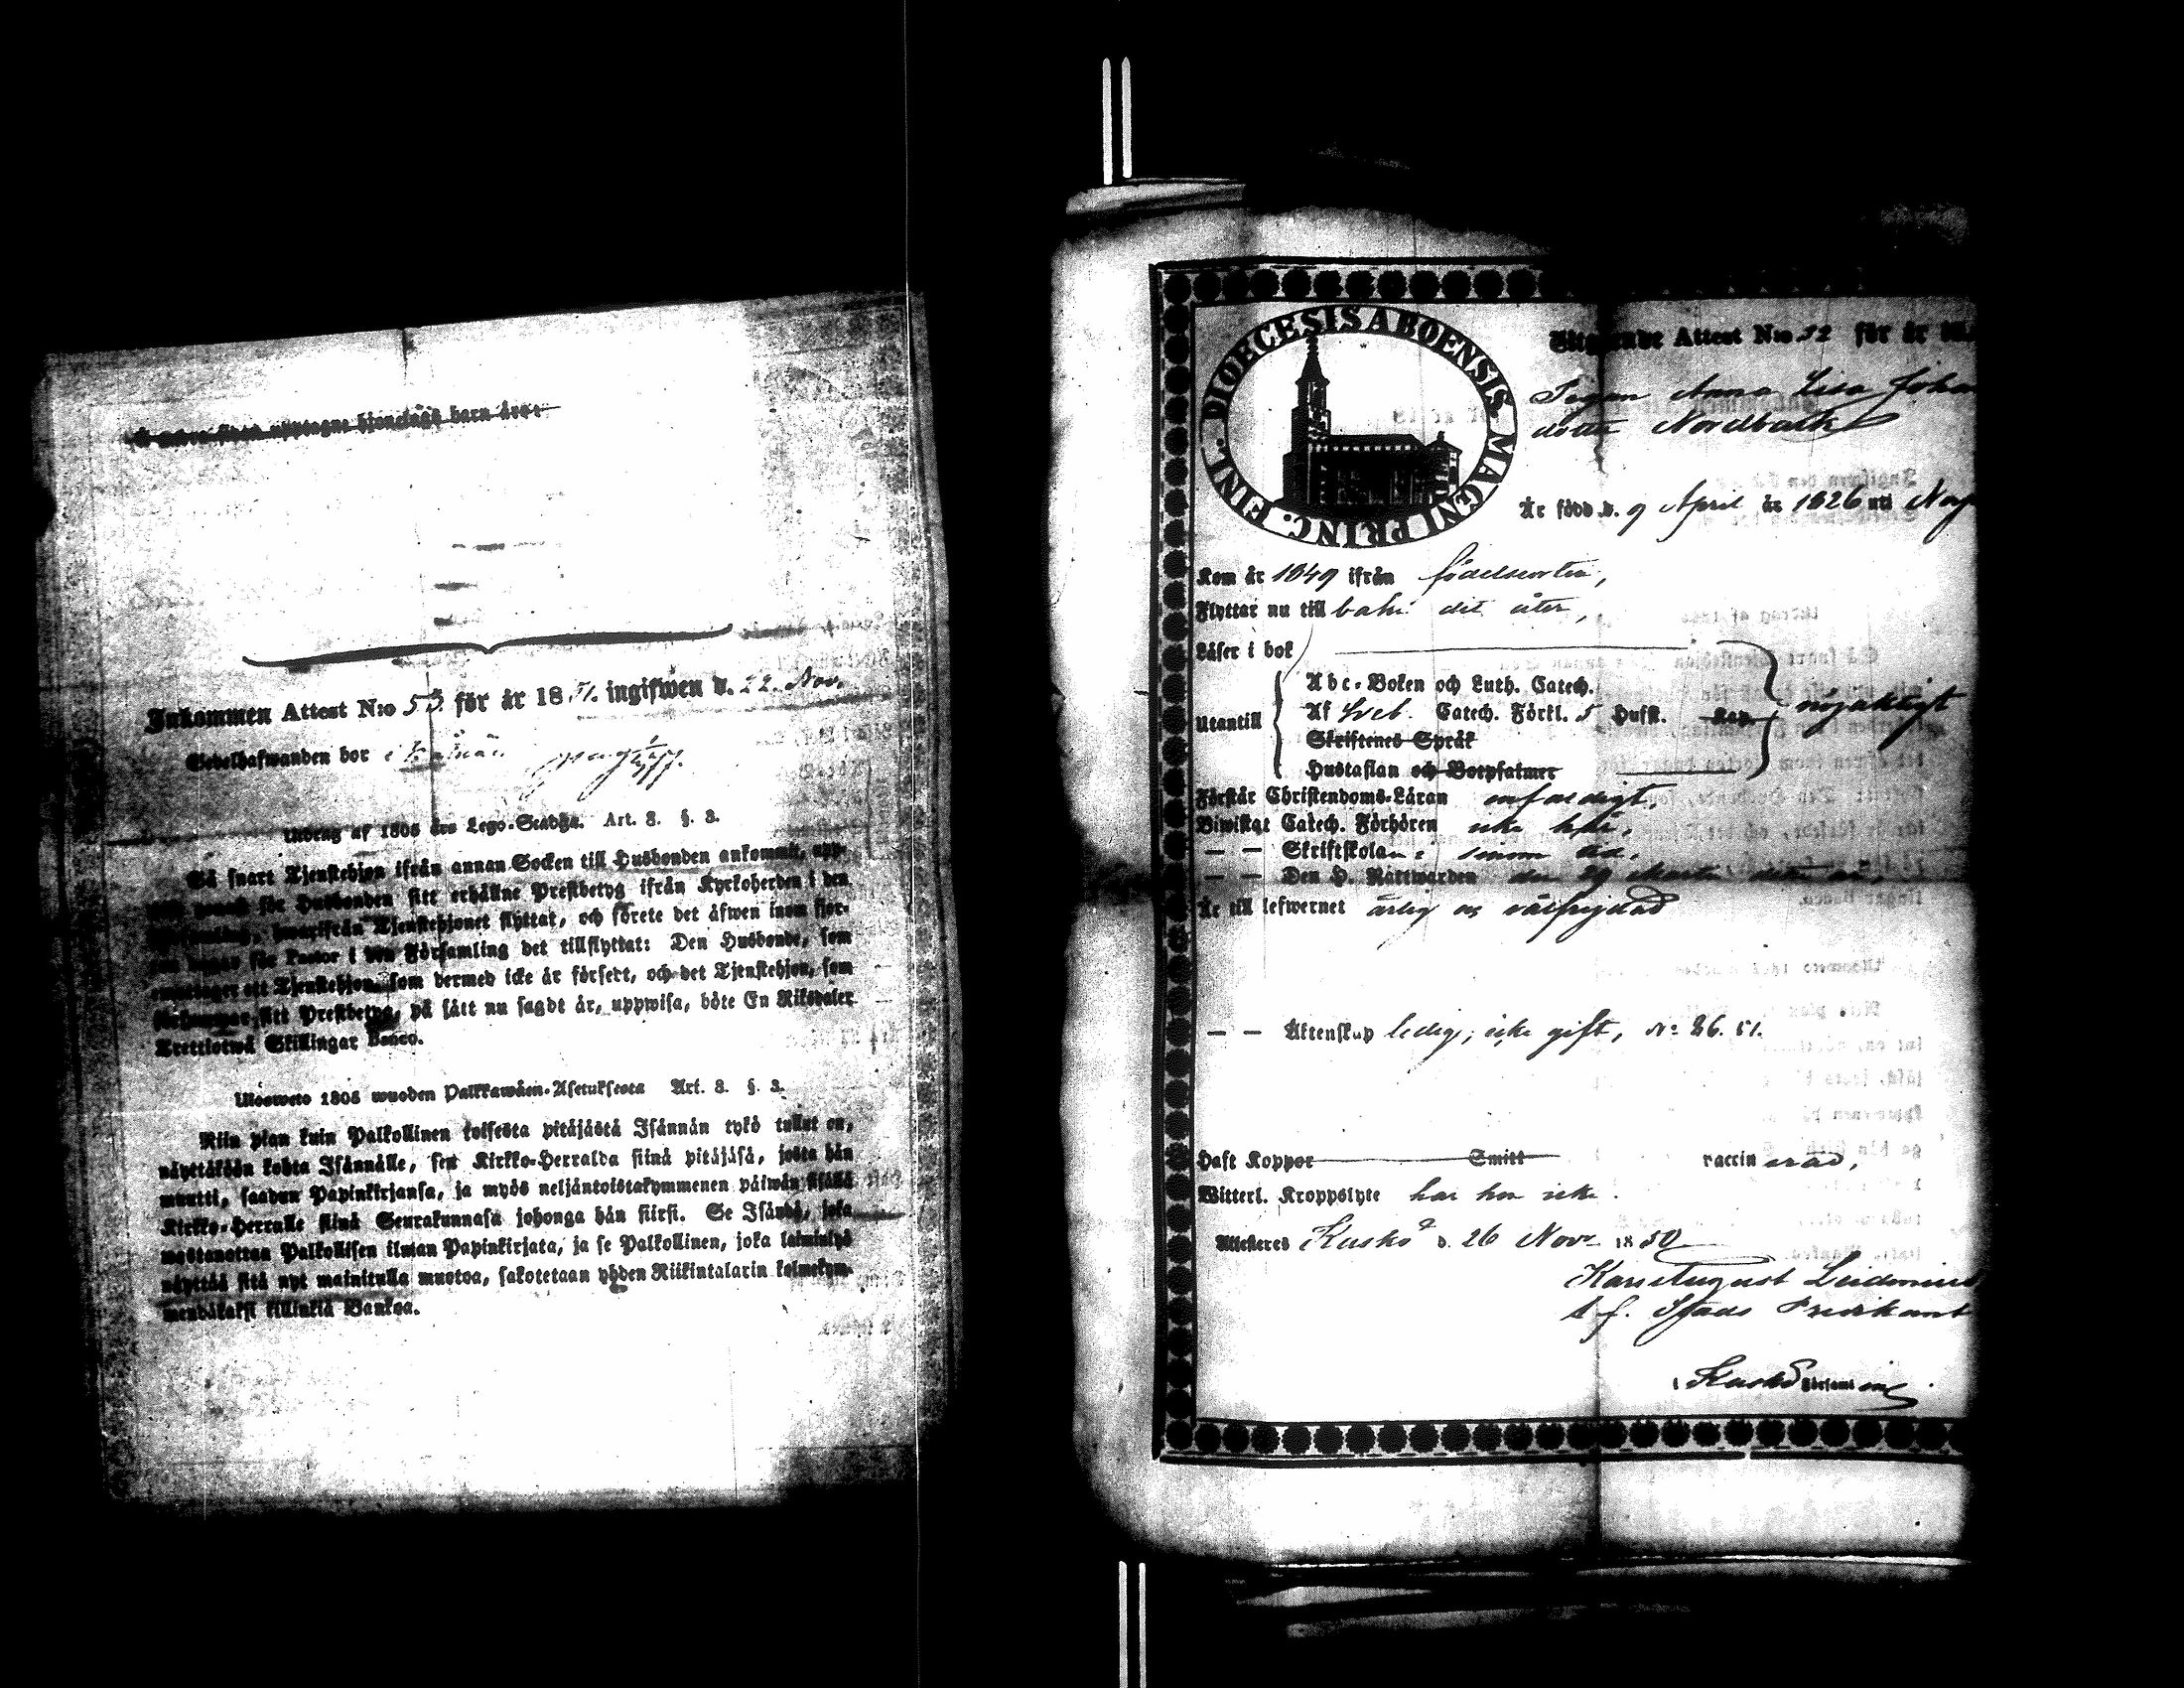 upptagne hjonelags barn äro:
Inkommen Attest N:o 53 för år 18 51. ingifwen d. 22. Nov.
Bedelhafwanden bor
Utdrag af 1805 års Lego-Stadga. Art. 3. §. 3.
Så snart Tjenstehjon ifrån annan Socken till Husbonden ankommit, upp-
för Husbonden sitt erhållne Prestbetyg ifrån Kyrkoherden i den
hwarifrån Tjenstehjonet flyttat, och förete det äfwen inom fjor-
dagar för Pastor i den Församling det tillflyttat: Den Husbonde, som
emottager ett Tjenstehjon som dermed icke är försedt, och det Tjenstehjon, som
försummar sitt Prestbetyg, på sätt nu sagdt är, uppwisa, böte En Riksdaler
Trettiotwå Skillingar Banco.
Ulosweto 1805 wuoden Palkkawäen-Asetuksesta Art. 3. §. 3.
Niin pian kuin Palkollinen toisesta pitäjästä Isännän tykö tullut on,
näyttäköön kohta Isännälle, sen Kirkko-Herralda siinä pitäjäsä, josta hän
muutti, saadun Papinkirjansa, ja myös neljäntoistakymmenen päiwän sisällä
Kirkko-Herralle siinä Seurakunnasa johonga hän siirsi. Se Isändä, joka
wastanottaa Palkollisen ilman Papinkirjata, ja se Palkollinen, joka laiminlyö
näyttää sitä nyt mainitulla muotoa, sakotetaan yhden Riikintalarin kolmekym-
mendäkaksi killinkiä Bankoa.
DIOECESIS ABOENSIS MAGNI PRINC. FINL.
Utgående Attest N:o 52 för år
Pigan Anna Lisa Johan
dotter Nordback
Är född d. 9 April år 1826 uti
Kom år 1849 ifrån födelseorten,
Flyttar nu till baka dit åter,
Läser i bok
Utantill
Abc-Boken och Luth. Catech.
Af Sveb. Catech. Förkl. 5 Hufst. Kap.
nöjaktigt
Skriftenes Språk
Hustaflan och Botpsalmer
Förstår Christendoms-Läran enfaldigt
Biwistat Catech. Förhören icke här,
— — Skriftskolan: i sinom tid,
— — Den H. Nattwarden den 29 Martii detta år,
Är till lefwernet ärlig och välfrejdad
— — Äktenskap ledig; icke gift, N:o 26. 51.
Haft Koppor Smitt vaccin erad,
Witterl. Kroppslyte har hon icke.
Attesteras Kaskö d. 26 Novr 1850
Karl August
t. f. Stads Predikant
i Kaskö Församling